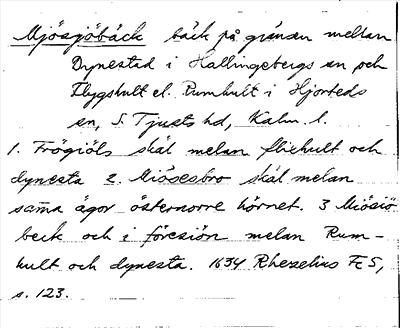 Mjösjöbäck bäck på gränsen mellan
Dynestad i Hallingebergs sn och
Flygshult el. Rumhult i Hjorteds
sn, S. Tjusts hd, Kalm. l.
1. Frögiöls skäl melan fliehult och
dynesta 2. Miösesbro skäl melan
sama ägor östernorre hörnet. 3 Miösiö
beck och i föresiön melan Rum-
hult och dynesta. 1634 Rhezelius Fc5,
s. 123.